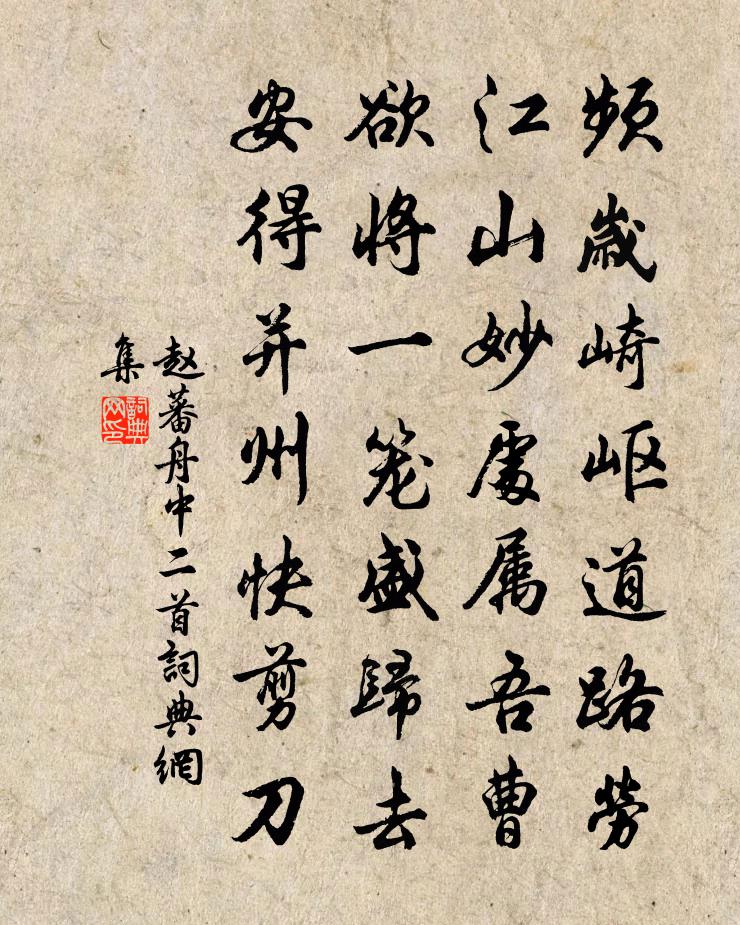 頻歲崎岖道路勞
江山妙處属吾曹
欲將一笼盛歸去
安得并州快剪刀
赵蕃舟中二首詞典網
集
詞典网印